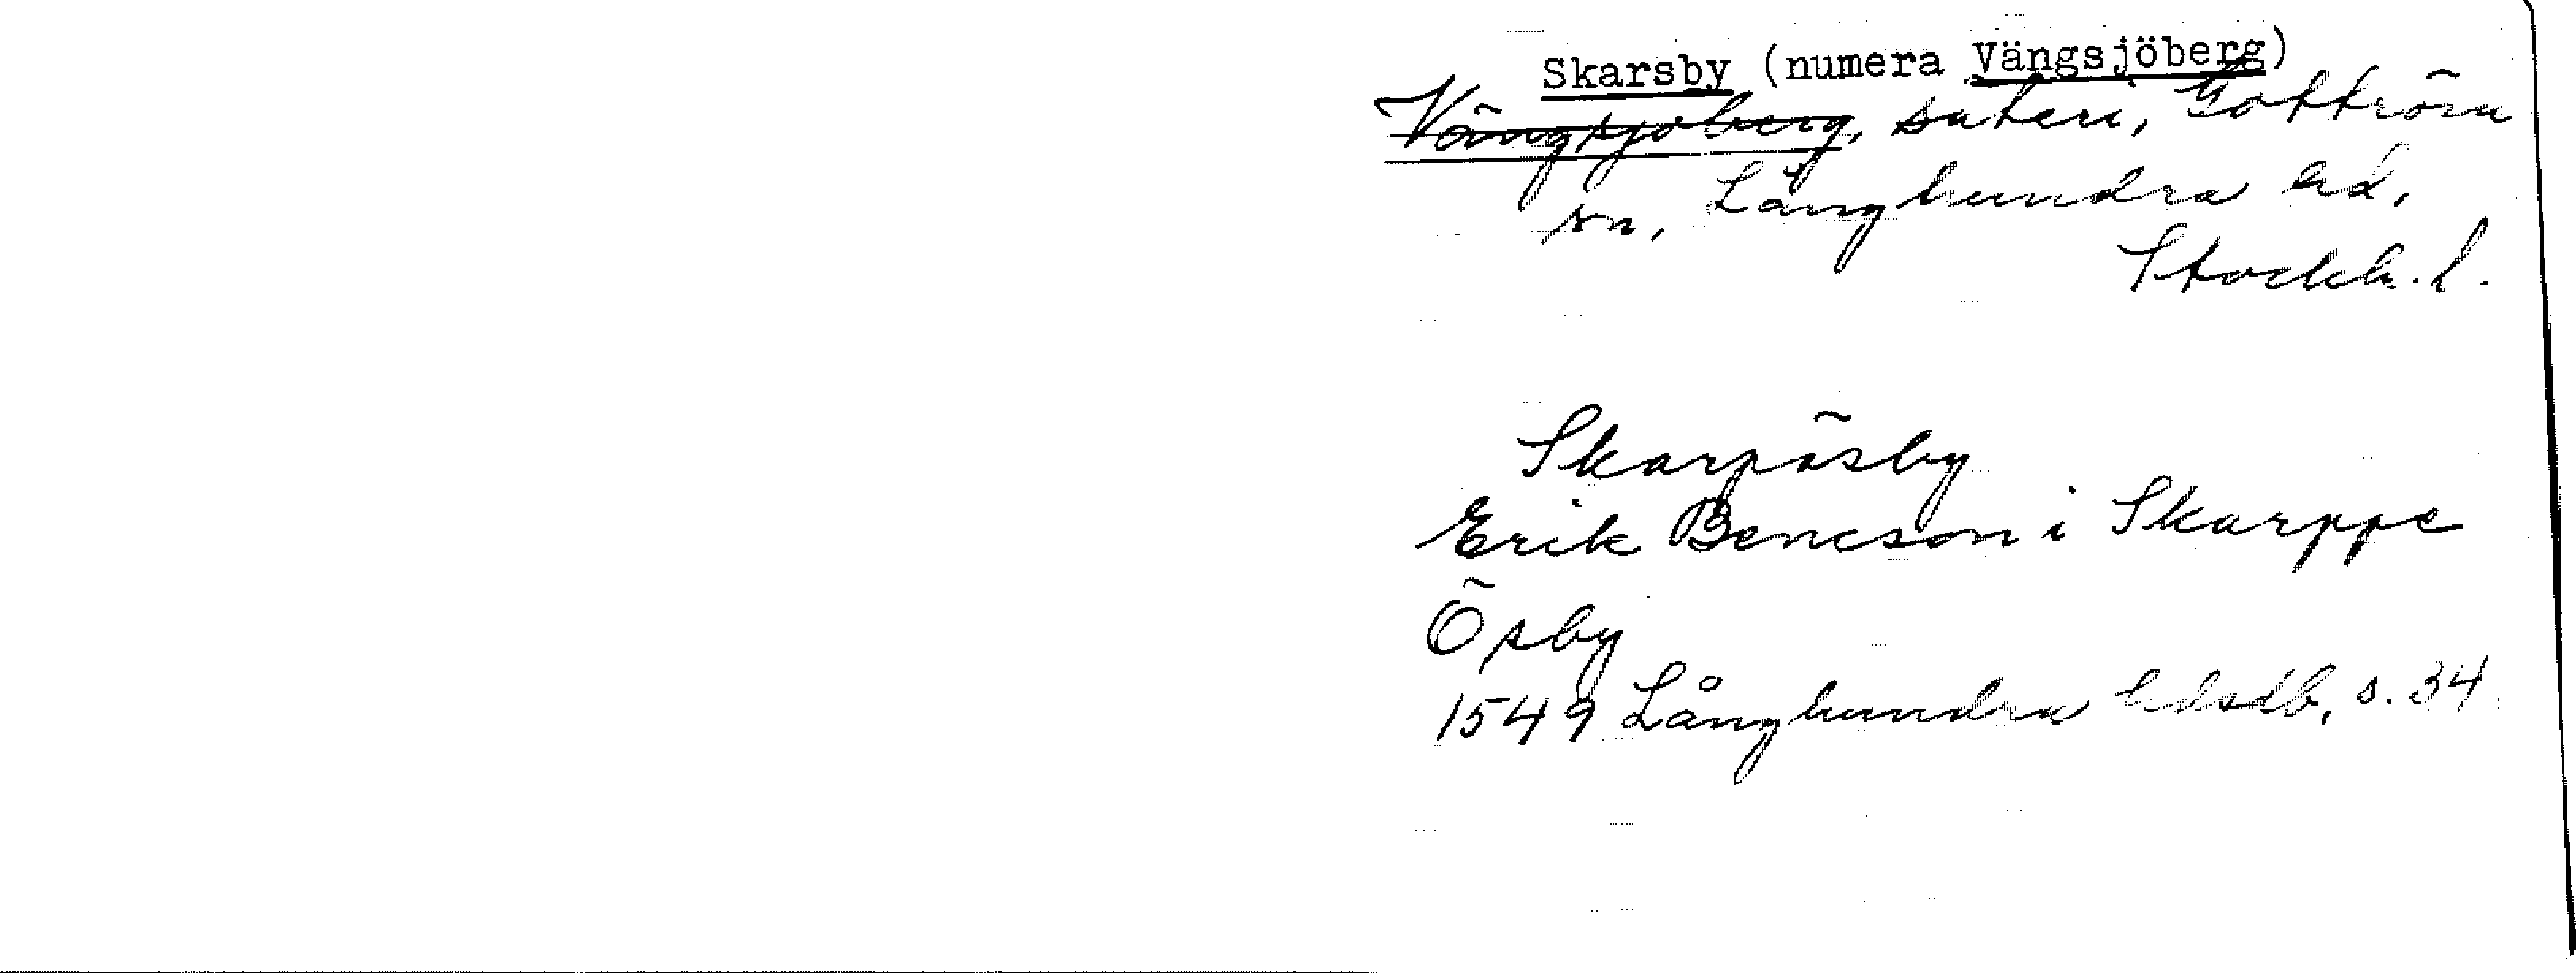 Skarsby (numera Vängsjöberg)
Vängsjöberg, säteri, Gottröra
sn, Långhundra hd,
Stockh. l.
Skarpösby
Erik Bencson i Skarppe
Ösby
1549 Långhundra hdsdb, s. 34